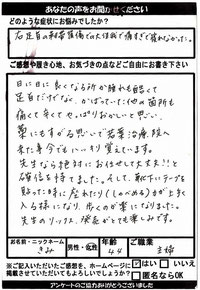 あなたの声をお聞かせください
どのような症状にお悩みでしたか？
右足首の靭帯損傷での大怪我で痛すぎて寝れなかった。
ご感想や履き心地、お気づきの点などご自由にお書き下さい
日に日に良くなる所か腫れも酷くて
足首だけでなく、かばっていた他の箇所も
痛くて辛くてやっぱりおかしいと思い、
藁にもすがる思いで若葉治療院へ
来た事今でもハッキリ覚えてます。
先生なら絶対にお任せして大丈夫!!と
確信を持てました。そして、靴下にテープを
貼った時に座れたり（しゃがめる）が上手く
入る様になり、歩くのが楽になりました。
先生のリックス、成長がとても楽しみです。
お名前・ニックネーム
きみ
男性・女性
年齢
44
ご職業
主婦
※ご記入いただいたご感想を、ホームページに
掲載させていただいてもよろしいでしょうか？
はい
いいえ
匿名ならOK
アンケートのご協力ありがとうございました